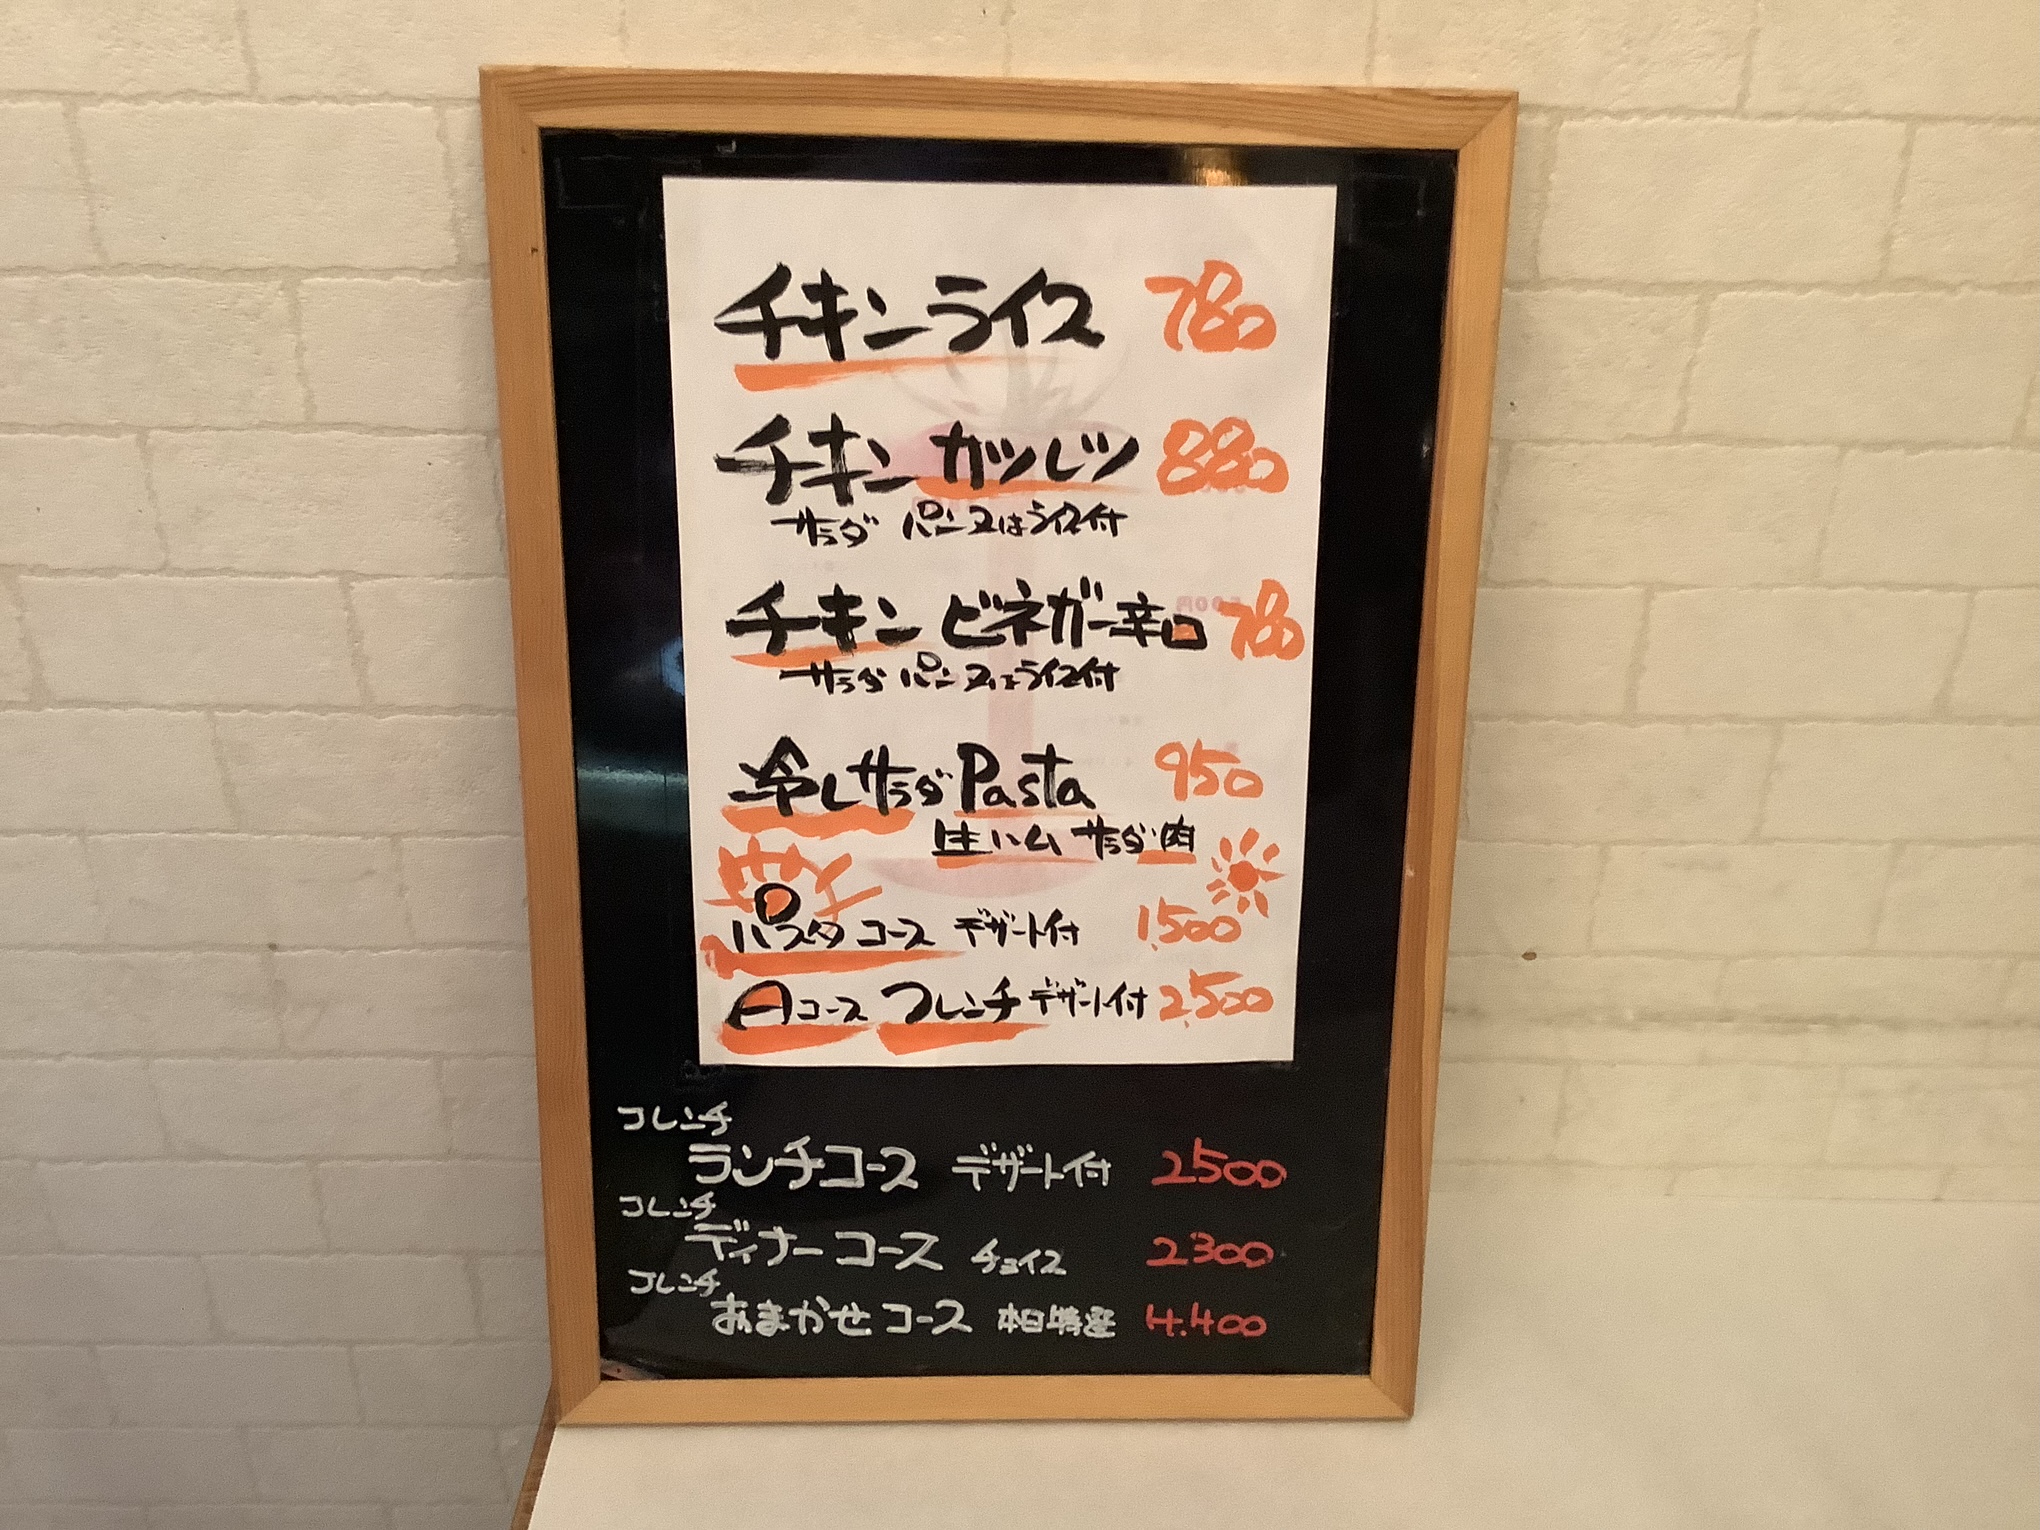 チキンライス 780
チキンカツレツ 880
サラダ パン又はライス付
チキンビネガー辛口 780
サラダ パン又はライス付
冷しサラダPasta 950
生ハム サラダ肉
パスタコース デザート付 1,500
Aコース フレンチ デザート付 2,500
フレンチ
ランチコース デザート付 2500
フレンチ
ディナーコース チョイス 2300
フレンチ
おまかせコース 本日特選 4.400